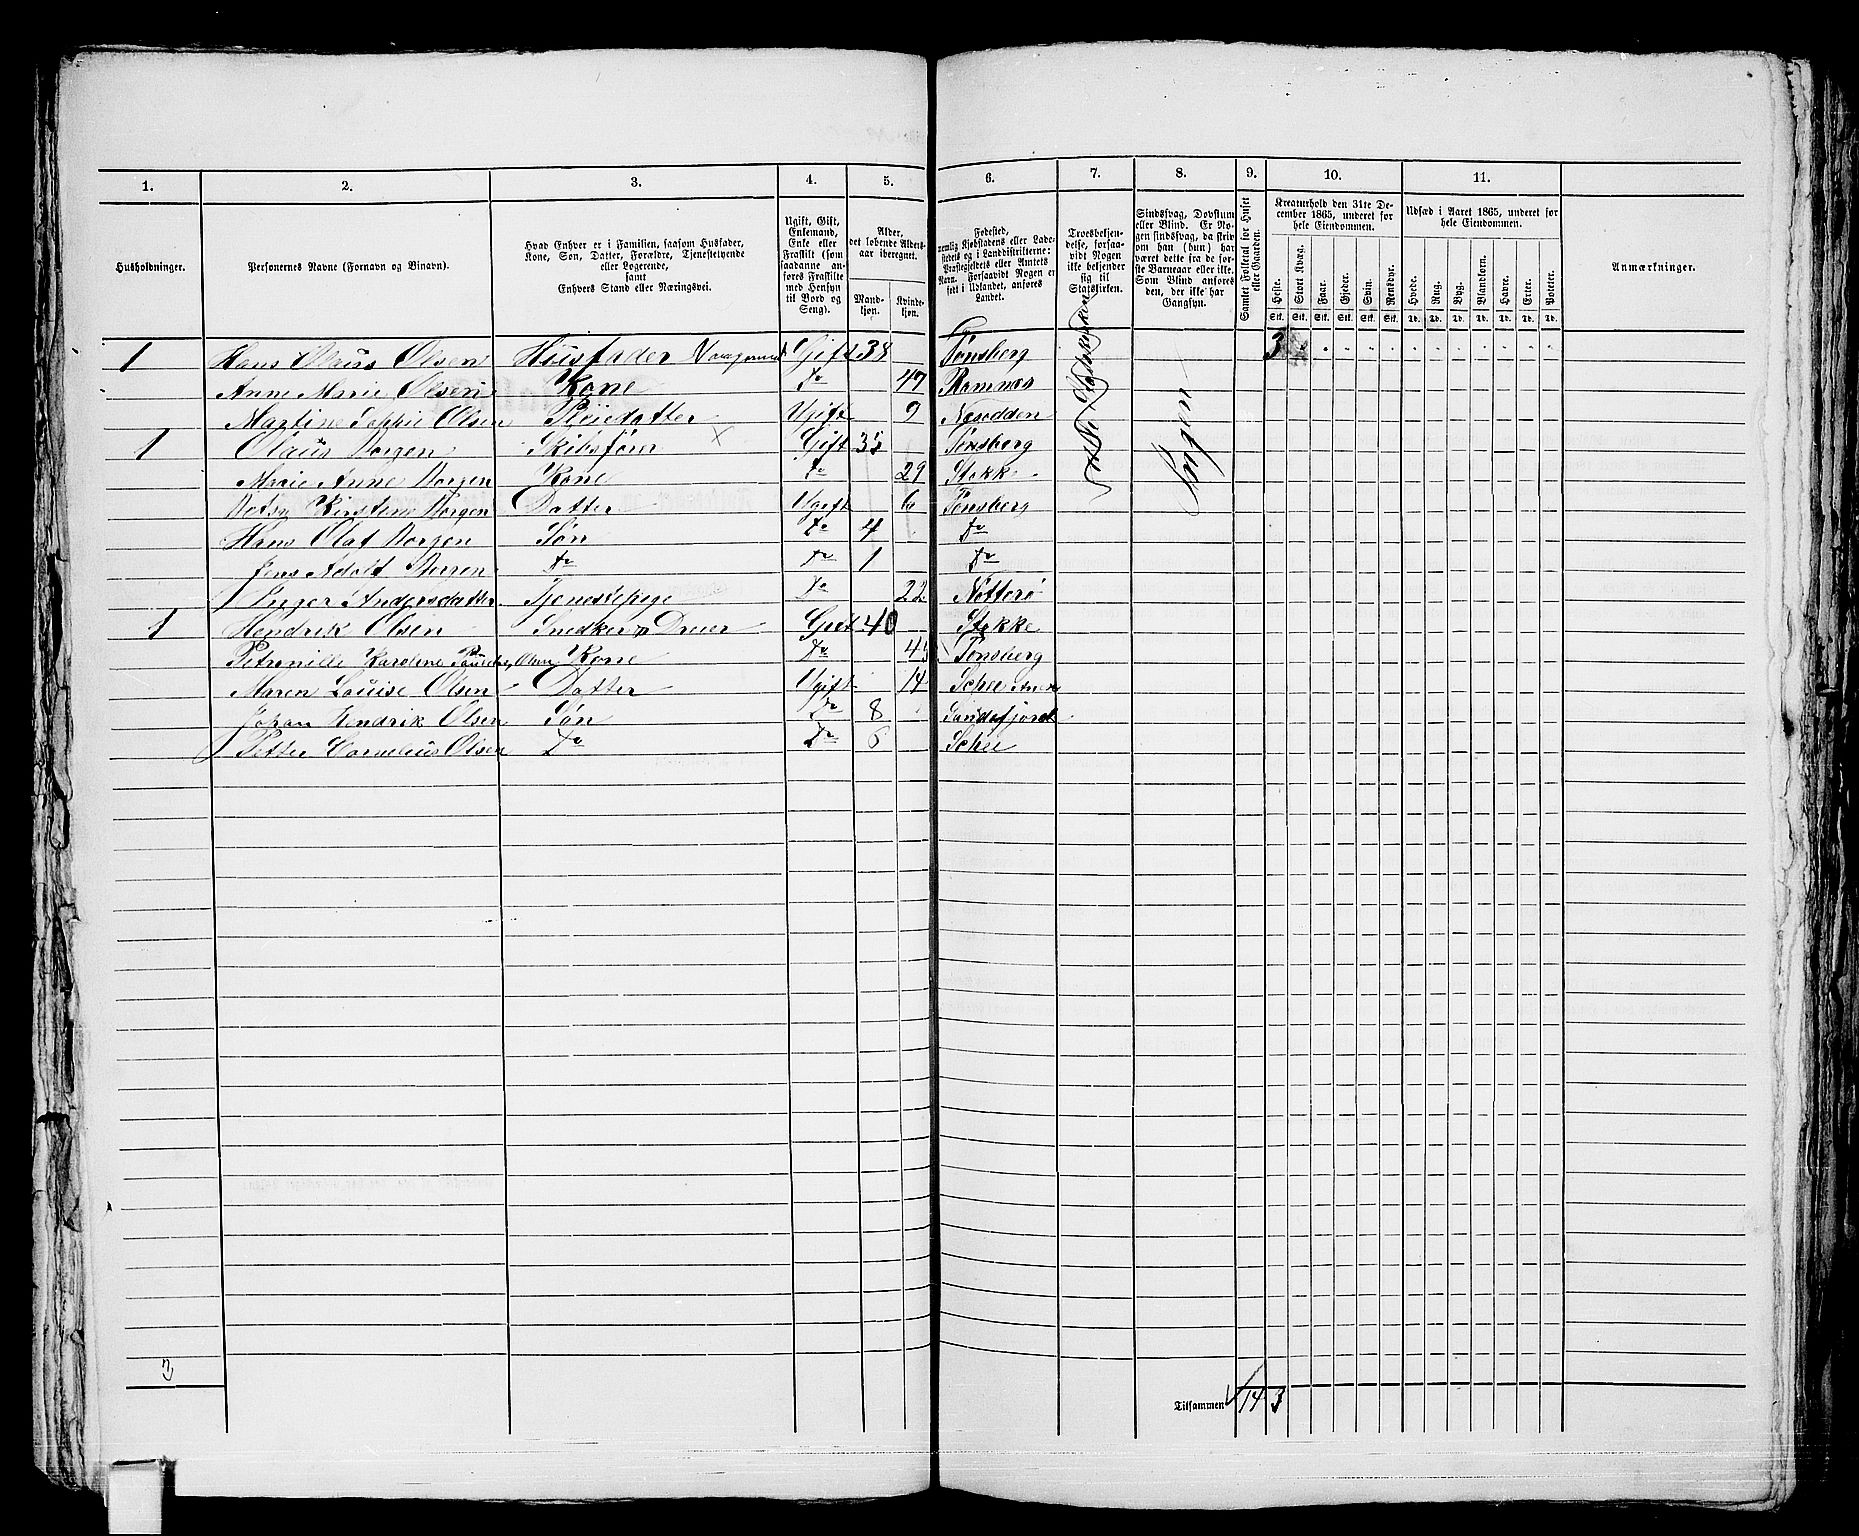 1. 2. 3. 4. 5. 6. 7. 8. 9. 10. 11.
Husholdninger.
Personernes Navne (Fornavn og Binavn).
Hvad Enhver er i Familien, saasom Husfader,
Kone, Søn, Datter, Forældre, Tjenestetyende
eller Logerende,
samt
Enhvers Stand eller Næringsvei.
Ugift, Gift,
Enkemand,
Enke eller
Fraskilt (som
saadanne an-
føres Fraskilte
med Hensyn
til Bord og
Seng).
Alder,
det løbende Alders-
aar iberegnet.
Mand-
kjøn.
Kvinde-
kjøn.
Fødested,
nemlig Kjøbstadens eller Lade-
stedets og i Landdistrikterne:
Præstegjeldets eller Amtets
Navn. Forsaavidt Nogen er
født i Udlandet, anføres
Landet.
Troesbekjen-
delse, forsaa-
vidt Nogen
ikke bekjender
sig til
Statskirken.
Sindssvag, Døvstum
eller Blind. Er No-
gen sindssvag, da skriv
om han (hun) har
været dette fra de før-
ste Barneaar eller ikke.
Som Blind anføres
den, der ikke har
Gangsyn.
Samlet Folketal for Huset
eller Gaarden.
Kreaturhold den 31te De-
cember 1865, underet for
hele Eiendommen.
Heste. Stort Kvæg. Faar. Gjeder. Svin. Rensdyr.
Stk. Stk. Stk. Stk. Stk. Stk.
Udsæd i Aaret 1865, underet for
hele Eiendommen.
Hvede. Rug. Byg. Blandkorn. Havre. Erter. Poteter.
Td. Td. Td. Td. Td. Td. Td.
Anmærkninger.
1 Hans Olaus Olsen Husfader Vongmand Gift 38 Tønsberg 3
Anne Marie Olsen Kone Do 47 Ramnæs
Martine Sophie Olsen Pleiedatter Ugift 9 Næsodden
1 Olaus Borgen Skibsfører Gift 35 Tønsberg
Marie Anne Borgen Kone Do 29 Stokke
Betsy Kirstine Borgen Datter Ugift 6 Tønsberg
Hans Olaf Borgen Søn Do 4 Do
Jens Adolf Borgen Do Do 1 Do
Inger Andersdatter Tjenestepige Do 22 Nøtterø
1 Hendrik Olsen Snedker Dreier Gift 40 Stokke
Petronille Karoline Olsen Kone Do 45 Tønsberg
Maren Louise Olsen Datter Ugift 14 Schee
Johan Hendrik Olsen Søn Do 8 Sandefjord
Petter Cornelius Olsen Do Do 6 Schee
Statskirken
Ingen
3
Tilsammen 14 3